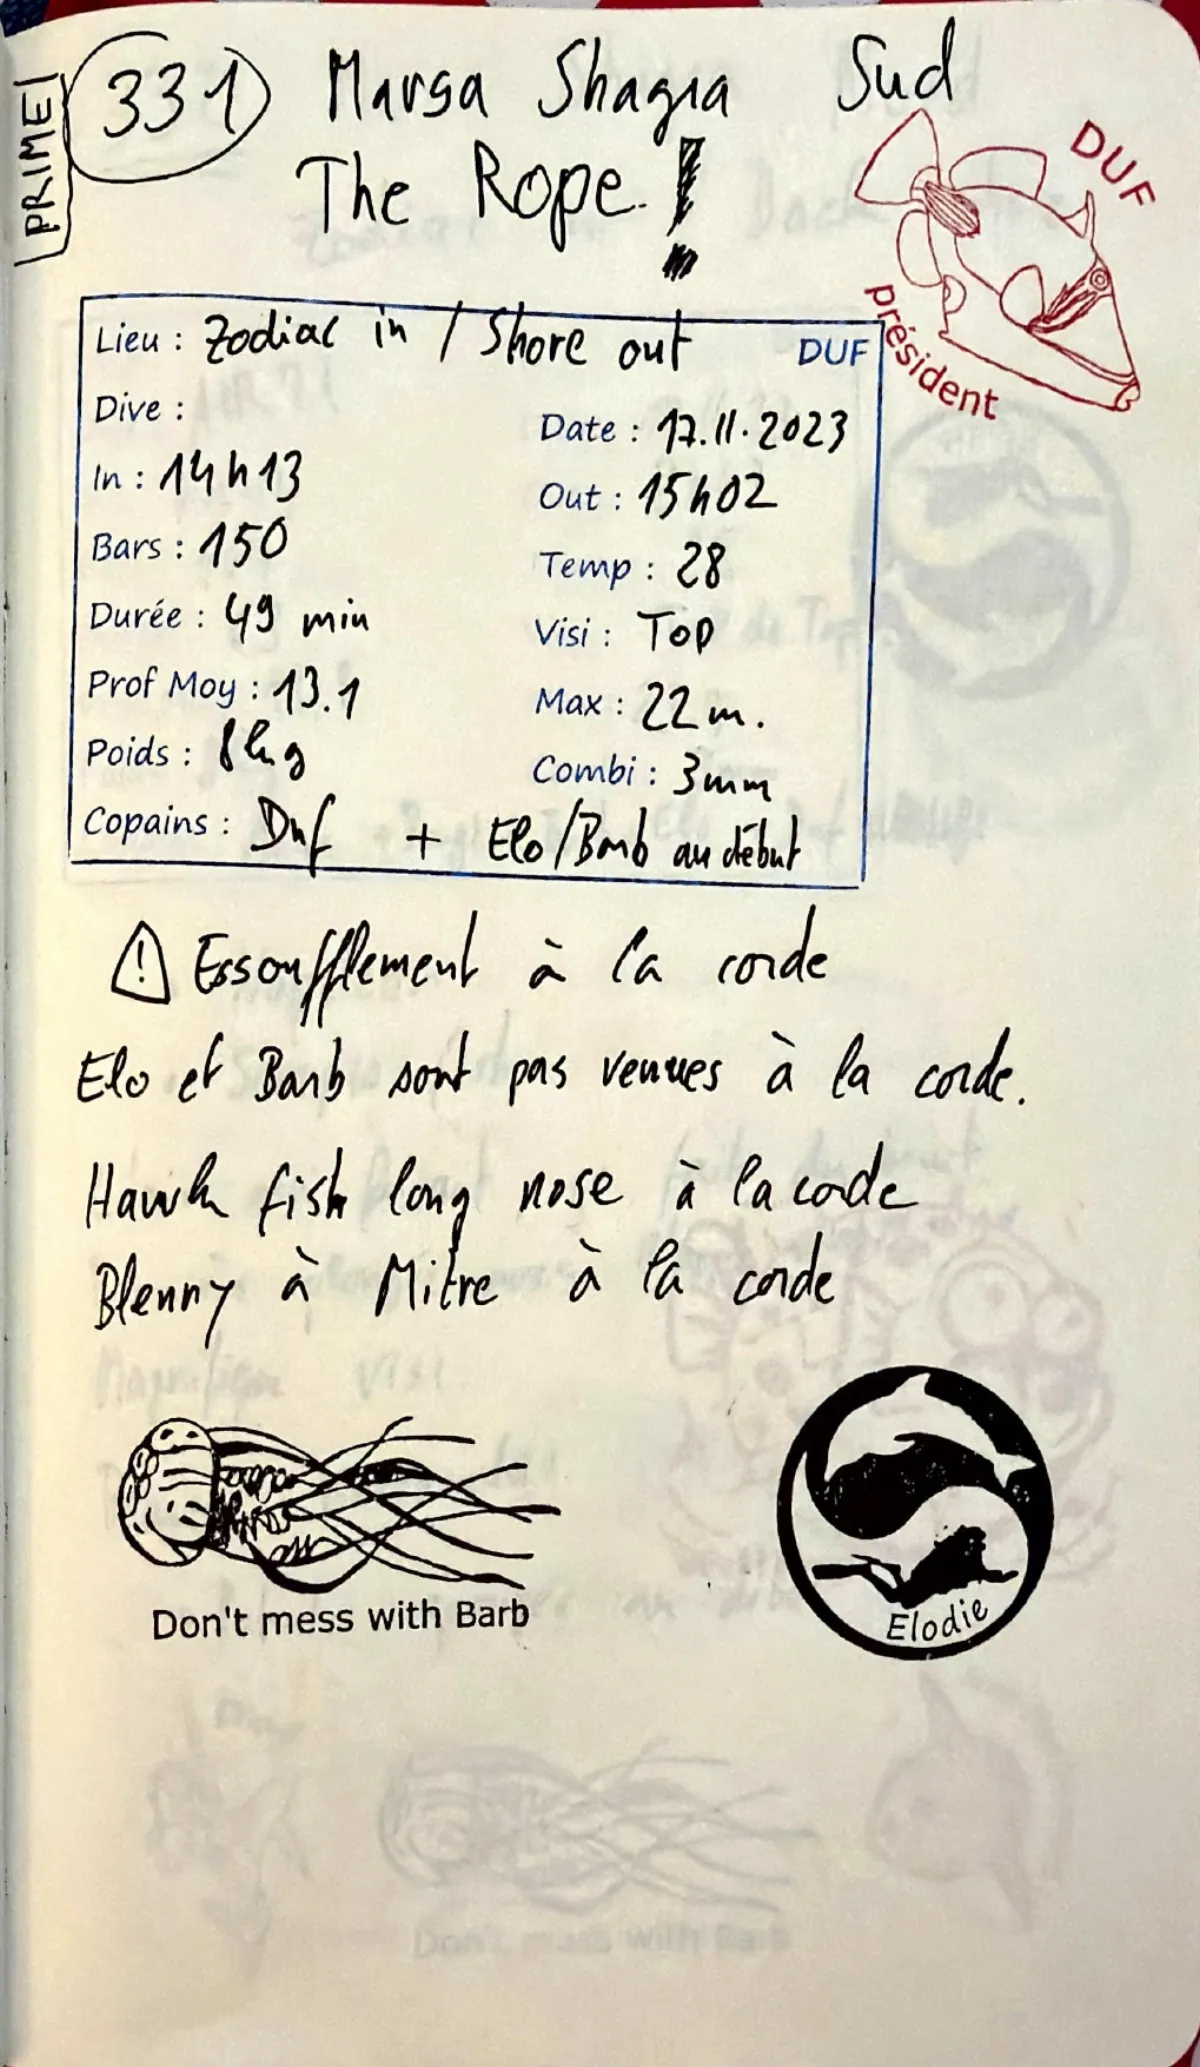 PRIME!
331 Marsa Shagra Sud
The Rope !
DUF
président
Lieu : Zodiac in / Shore out DUF
Dive :
Date : 17.11.2023
In : 14h13
Out : 15h02
Bars : 150
Temp : 28
Durée : 49 min
Visi : Top
Prof Moy : 13.1
Max : 22m.
Poids : 8kg
Combi : 3mm
Copains : Duf + Elo/Barb au début
Essoufflement à la corde
Elo et Barb sont pas venues à la corde.
Hawk fish long nose à la corde
Blenny à Mitre à la corde
Don't mess with Barb
Elodie